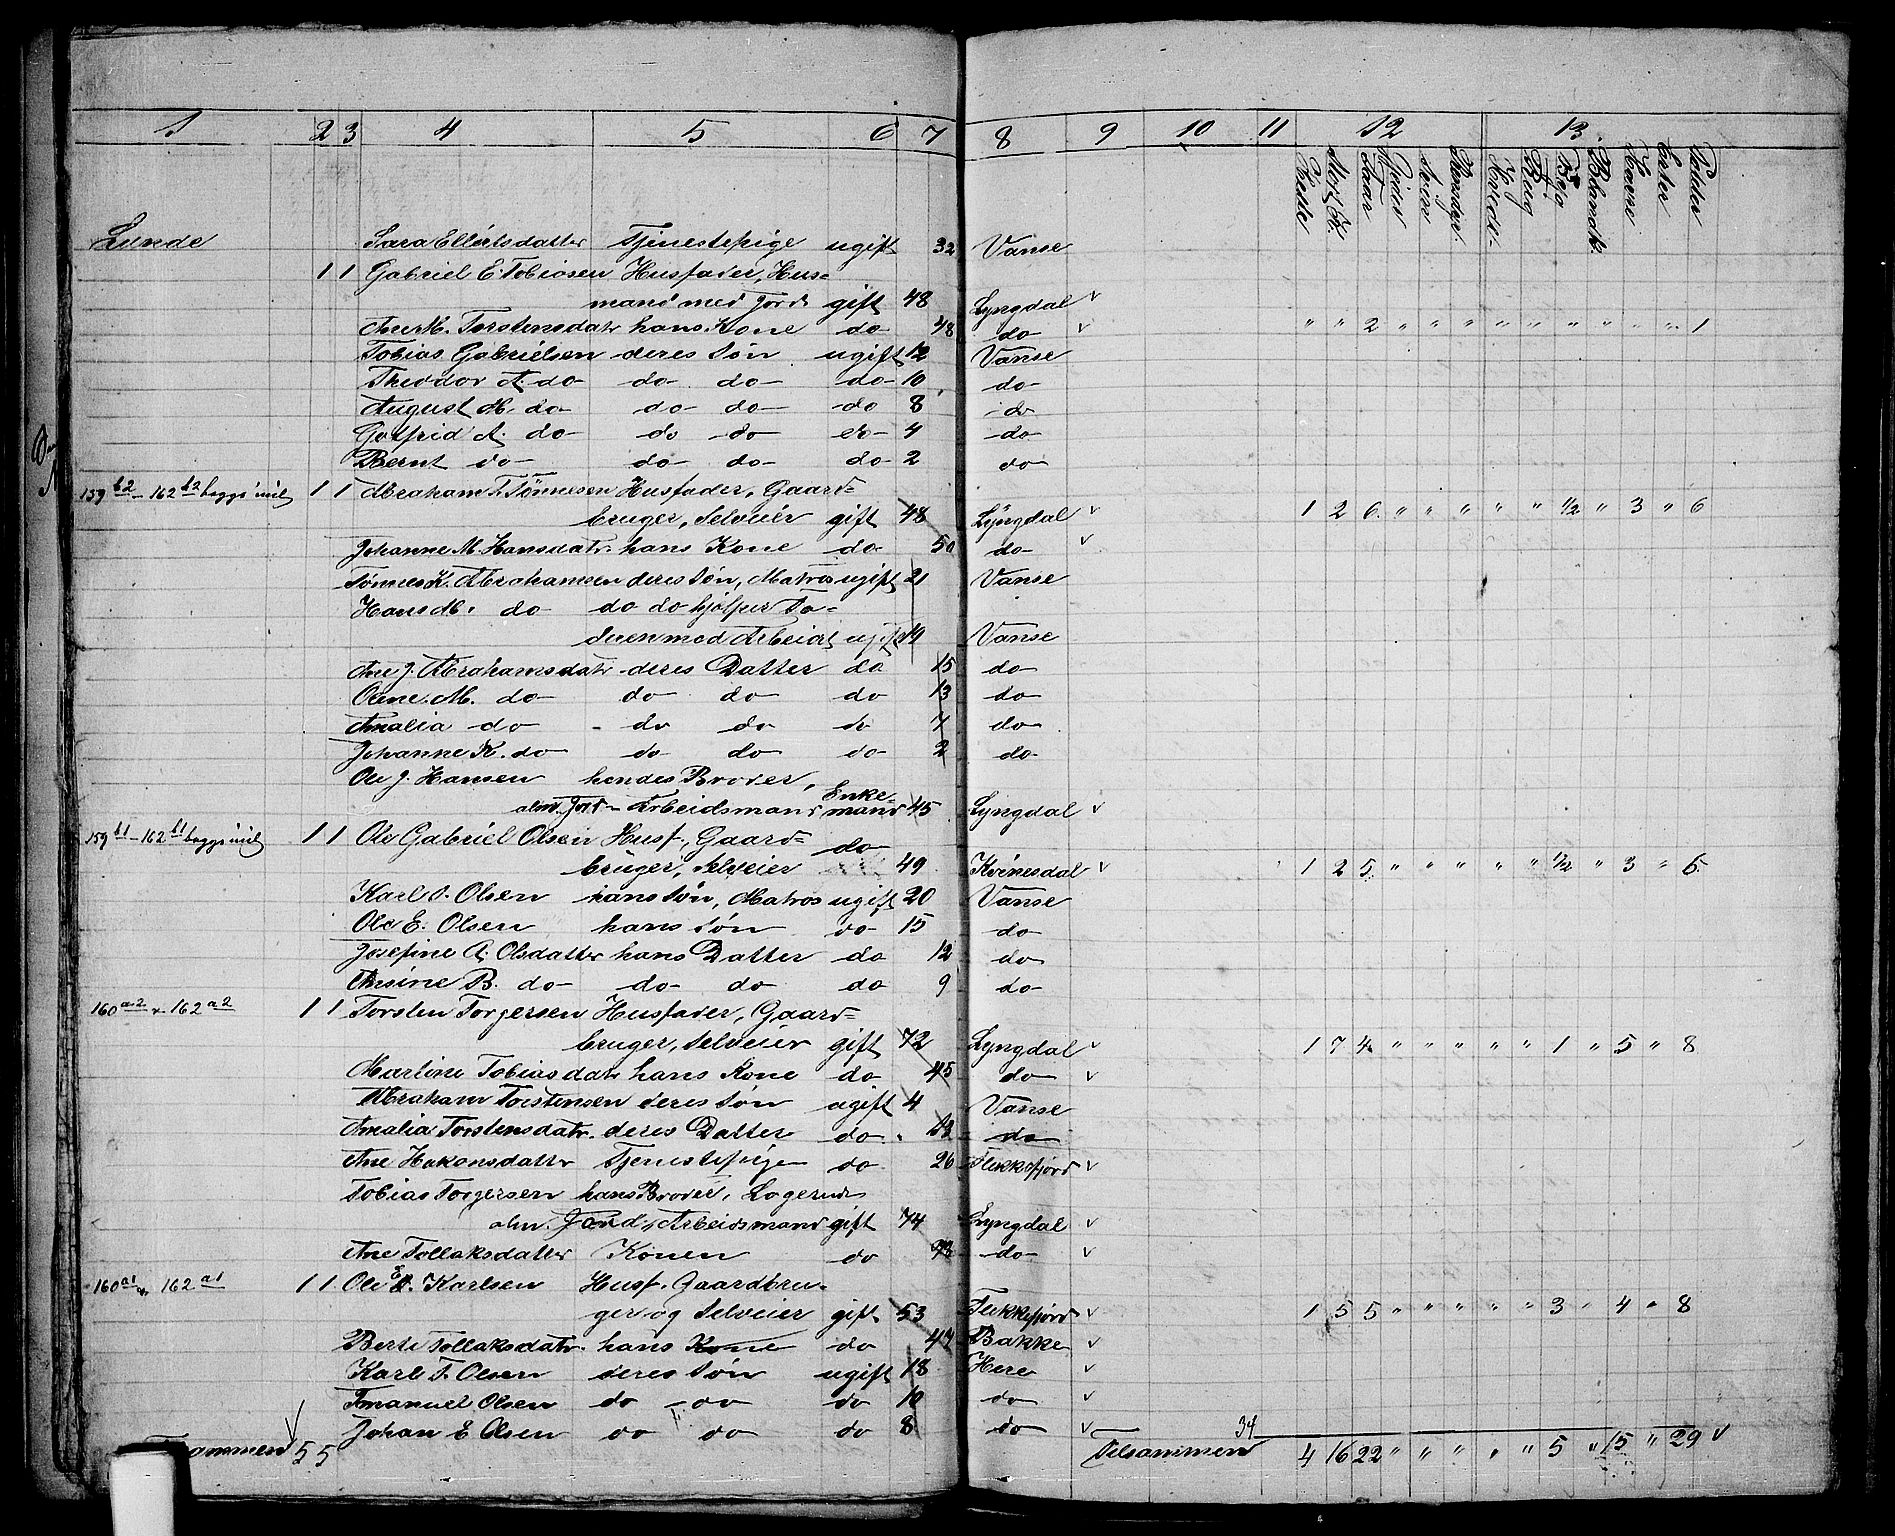 1 2 3 4 5 6 7 8 9 10 11 12 13
Heste Stort Q. Faar Gjeder Sviin Rensdyr. Hvede Rug Byg Blandk. Havre Erter Poteter
Lunde Sara Ellertsdatter Tjenestepige ugift 32 Vanse
1 1 Gabriel E. Tobiasen Husfader, Hus-
mand med Jord gift 48 Lyngdal v
Ane M. Torstensdatr hans Kone do 48 do v " " 2 " " " " " " " " " 1
Tobias Gabrielsen deres Søn ugift 12 Vanse
Theodor A. do do do do 10 do
August M. do do do do 8 do
Gotfrid A. do do do do 4 do
Bernt do do do do 2 do
159 b2 - 162 b2 begge uul 1 1 Abraham T. Tønnesen Husfader, Gaard-
bruger, Selveier gift 48 Lyngdal v 1 2 6 " " " " " 1/2 " 3 " 6
Johanne M. Hansdatr. hans Kone do 50 do v
Tønnes K. Abrahamsen deres Søn, Matros ugift 21 Vanse
Hans M. do do do hjelper Fa-
deren med Arbeidet ugift 19 Vanse
Ane J. Abrahamsdatr deres Datter do 15 do
Olene M. do do do do 13 do
Amalia do do do do 7 do
Johanne K. do do do do 2 do
Ole J. Hansen hendes Broder,
alm. Jord- Arbeidsmand Enke-mand 45 Lyngdal v
159 b1 - 162 b1 begge uul 1 1 Ole Gabriel Olsen Husf., Gaard- do
bruger, Selveier 49 Kvinesdal v 1 2 5 " " " " " 1/2 " 3 " 6
Karl T. Olsen hans Søn, Matros ugift 20 Vanse
Ole E. Olsen hans Søn do 15 do
Josefine A. Olsdatter hans Datter do 12 do
Thrine B. do do do do 9 do
160 a2 & 162 a2 1 1 Torsten Torgersen Husfader, Gaard-
bruger, Selveier gift 72 Lyngdal v 1 7 4 " " " " " 1 " 5 " 8
Martine Tobiasdatr hans Kone do 45 do v
Abraham Torstensen deres Søn ugift 4 Vanse
Amalia Torstensdatr. deres Datter do 13 do
Ane Hakonsdatter Tjenestepige do 26 Flekkefjord v
Tobias Torgersen hans Broder, Logerende
alm. Jord-Arbeidsmand gift 74 Lyngdal v
Ane Tollaksdatter Konen do 73 do v
160 a1 & 162 a1 1 1 Ole E. Karlsen Husf. Gaardbru-
ger og Selveier gift 53 Flekkefjord v 1 5 5 " " " " " 3 " 4 " 8
Berte Tollaksdatr. hans Kone do 47 Bakke v
Karl T. Olsen deres Søn ugift 18 Here v
Emanuel Olsen do do do 10 do v
Johan E Olsen do do do 8 do v
Tilsammen 5 5 Tilsammen 34 4 16 22 " " " " " 5 " 15 " 29 v